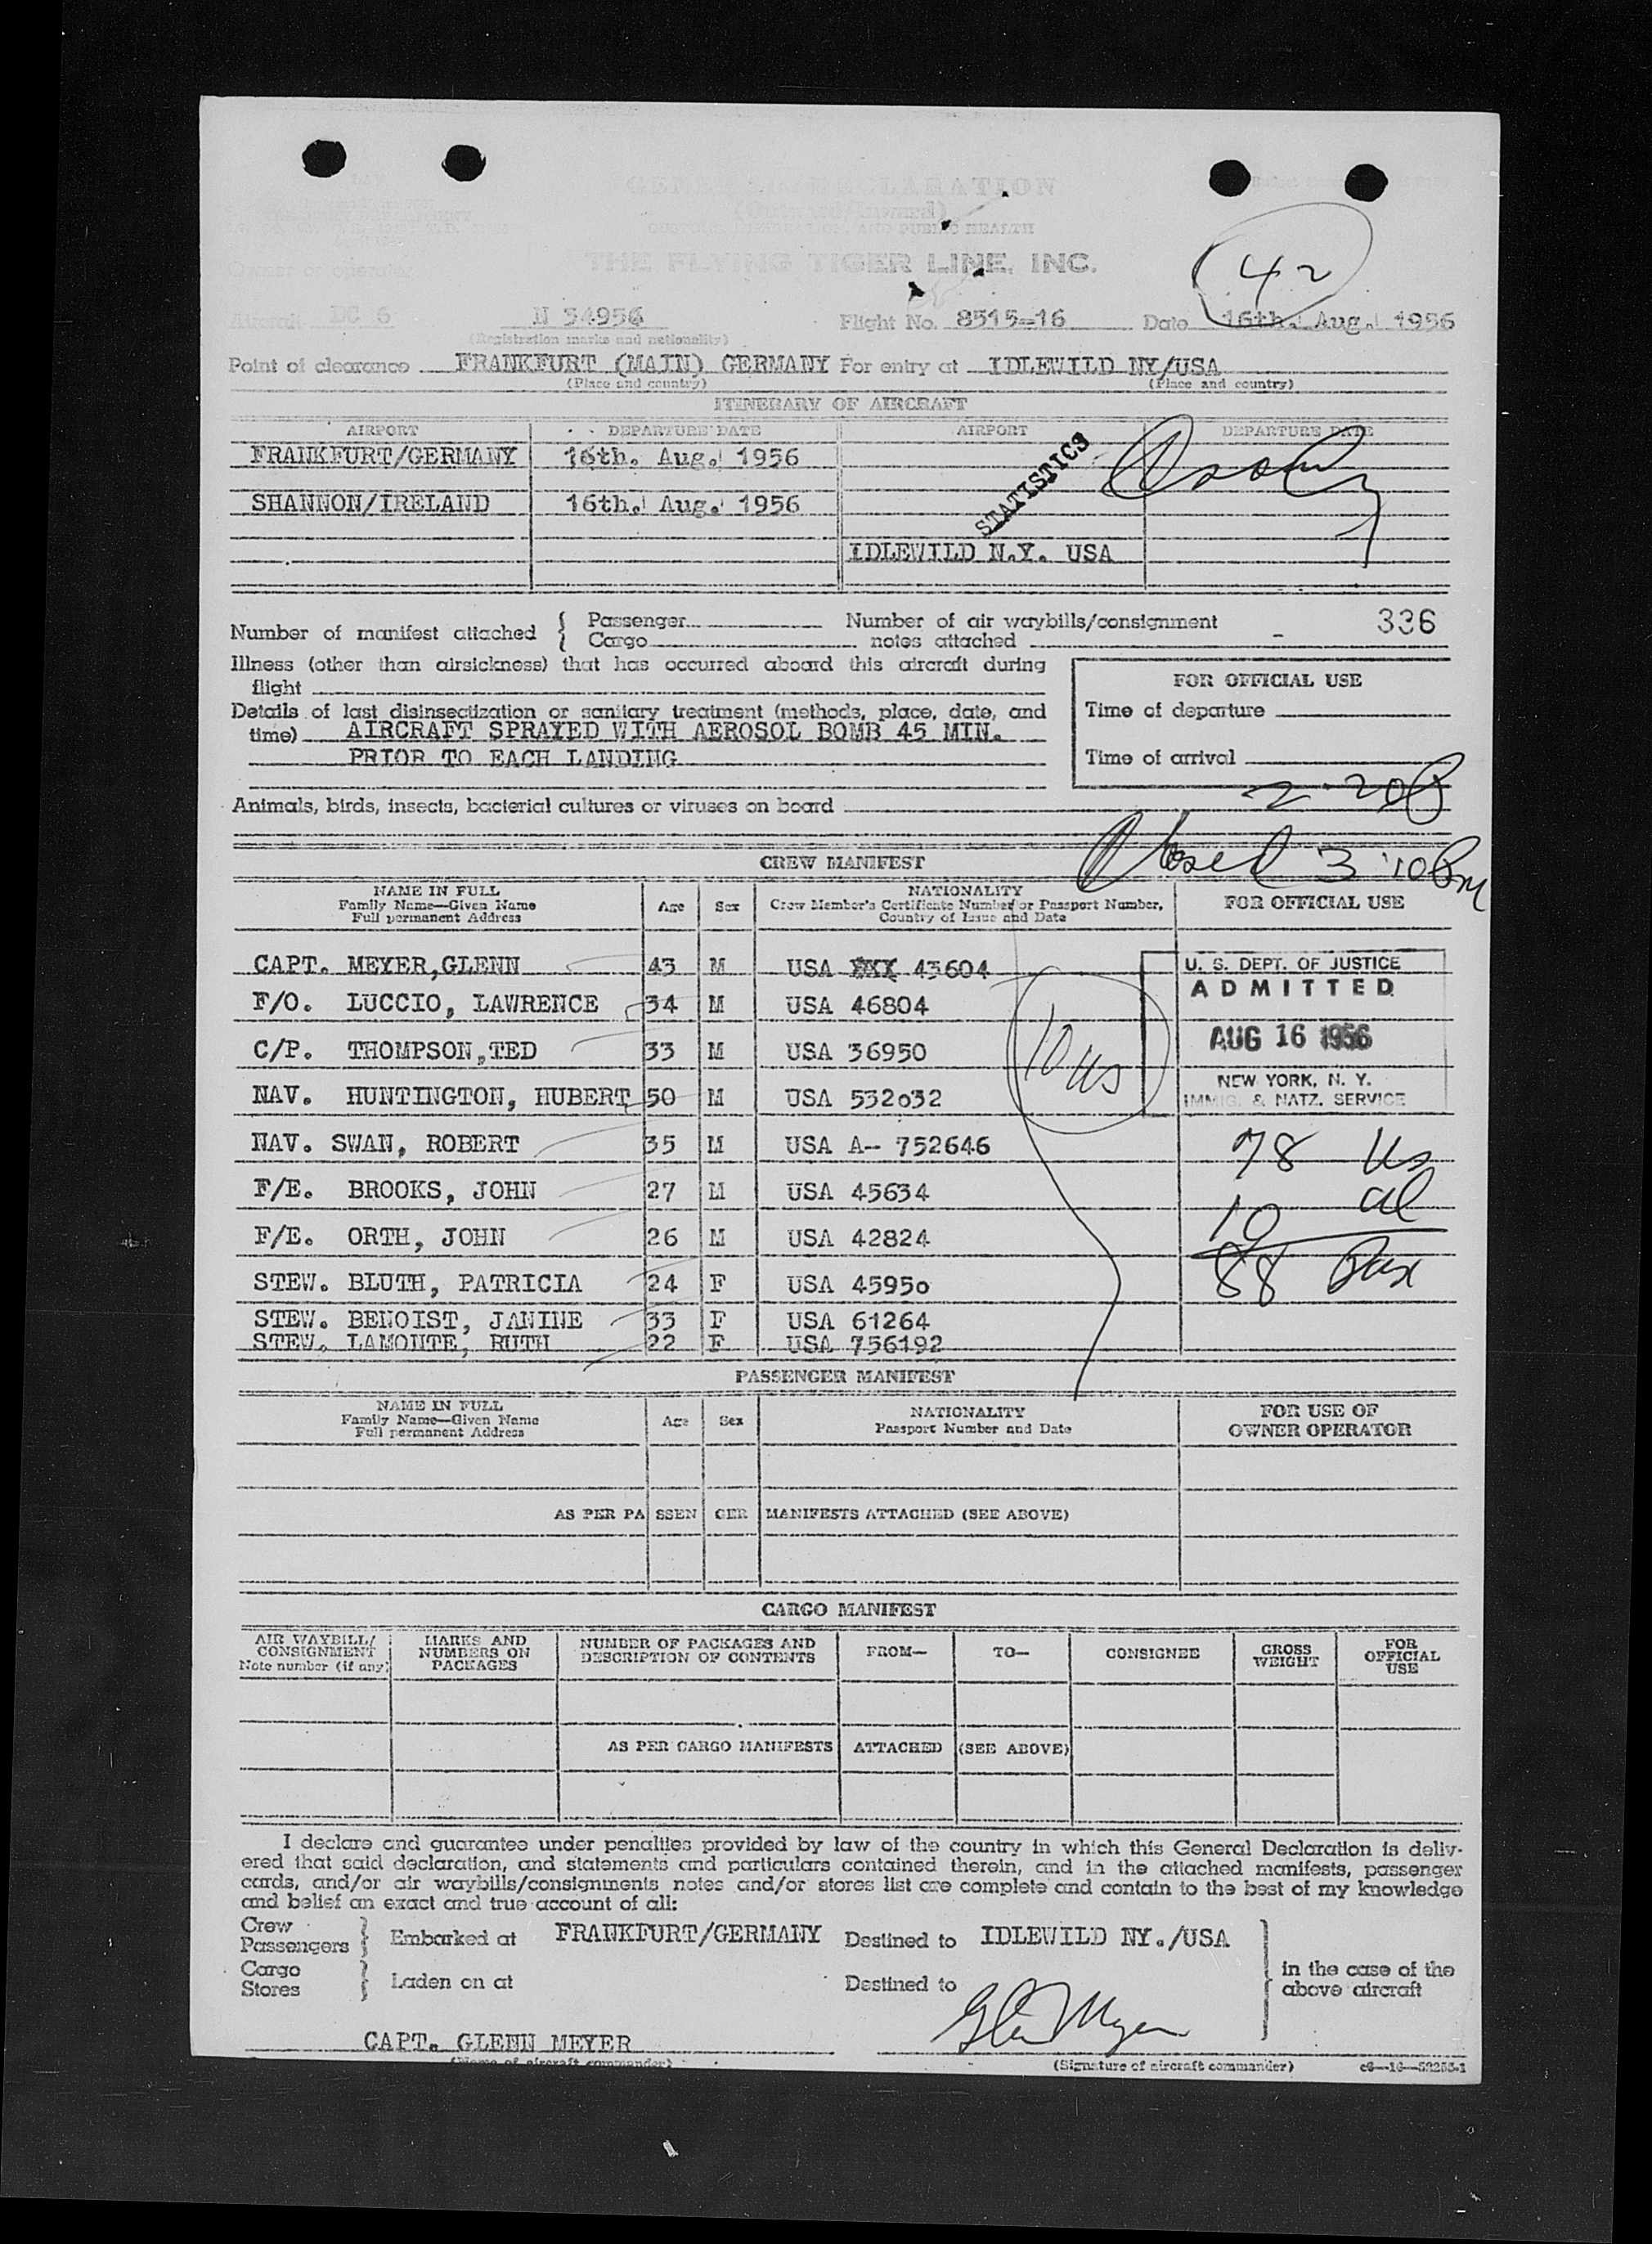 GENERAL DECLARATION
(Outward/Inward)
CUSTOMS, IMMIGRATION, AND PUBLIC HEALTH
Owner or operator THE FLYING TIGER LINE, INC.
42
Aircraft DC 6 N 34954 Flight No. 8515-16 Date 16th. Aug. 1956
(Registration marks and nationality)
Point of clearance FRANKFURT (MAIN) GERMANY For entry at IDLEWILD NY/USA
(Place and country) (Place and country)
ITINERARY OF AIRCRAFT
AIRPORT DEPARTURE DATE AIRPORT DEPARTURE DATE
FRANKFURT/GERMANY 16th. Aug. 1956
STATISTICS
SHANNON/IRELAND 16th. Aug. 1956
IDLEWILD N.Y. USA
Number of manifest attached { Passenger Number of air waybills/consignment 336
Cargo notes attached -
Illness (other than airsickness) that has occurred aboard this aircraft during
flight
FOR OFFICIAL USE
Details of last disinsectization or sanitary treatment (methods, place, date, and Time of departure
time) AIRCRAFT SPRAYED WITH AEROSOL BOMB 45 MIN.
PRIOR TO EACH LANDING Time of arrival
2-20P
Animals, birds, insects, bacterial cultures or viruses on board
Closed 3:10 Pm
CREW MANIFEST
NAME IN FULL
Family Name—Given Name
Full permanent Address
Age Sex
NATIONALITY
Crew Member's Certificate Number or Passport Number,
Country of Issue and Date
FOR OFFICIAL USE
CAPT. MEYER,GLENN 43 M USA XXX 43604
F/O. LUCCIO, LAWRENCE 34 M USA 46804
C/P. THOMPSON,TED 33 M USA 36950
NAV. HUNTINGTON, HUBERT 50 M USA 532032
NAV. SWAN, ROBERT 35 M USA A-- 752646
F/E. BROOKS, JOHN 27 M USA 45634
F/E. ORTH, JOHN 26 M USA 42824
STEW. BLUTH, PATRICIA 24 F USA 45950
STEW. BENOIST, JANINE 33 F USA 61264
STEW. LAMONTE, RUTH 22 F USA 756192
10 us
U. S. DEPT. OF JUSTICE
ADMITTED
AUG 16 1956
NEW YORK, N. Y.
IMMIG. & NATZ. SERVICE
78 Us
10 al
88 Pax
PASSENGER MANIFEST
NAME IN FULL
Family Name—Given Name
Full permanent Address
Age Sex
NATIONALITY
Passport Number and Date
FOR USE OF
OWNER OPERATOR
AS PER PASSENGER MANIFESTS ATTACHED (SEE ABOVE)
CARGO MANIFEST
AIR WAYBILL/
CONSIGNMENT
Note number (if any)
MARKS AND
NUMBERS ON
PACKAGES
NUMBER OF PACKAGES AND
DESCRIPTION OF CONTENTS
FROM— TO— CONSIGNEE
GROSS
WEIGHT
FOR
OFFICIAL
USE
AS PER CARGO MANIFESTS ATTACHED (SEE ABOVE)
I declare and guarantee under penalties provided by law of the country in which this General Declaration is deliv-
ered that said declaration, and statements and particulars contained therein, and in the attached manifests, passenger
cards, and/or air waybills/consignments notes and/or stores list are complete and contain to the best of my knowledge
and belief an exact and true account of all:
Crew
Passengers } Embarked at FRANKFURT/GERMANY Destined to IDLEWILD NY./USA
Cargo
Stores } Laden on at Destined to
in the case of the
above aircraft
Glenn Meyer
CAPT. GLENN MEYER
(Name of aircraft commander) (Signature of aircraft commander) c6—16—58255-1